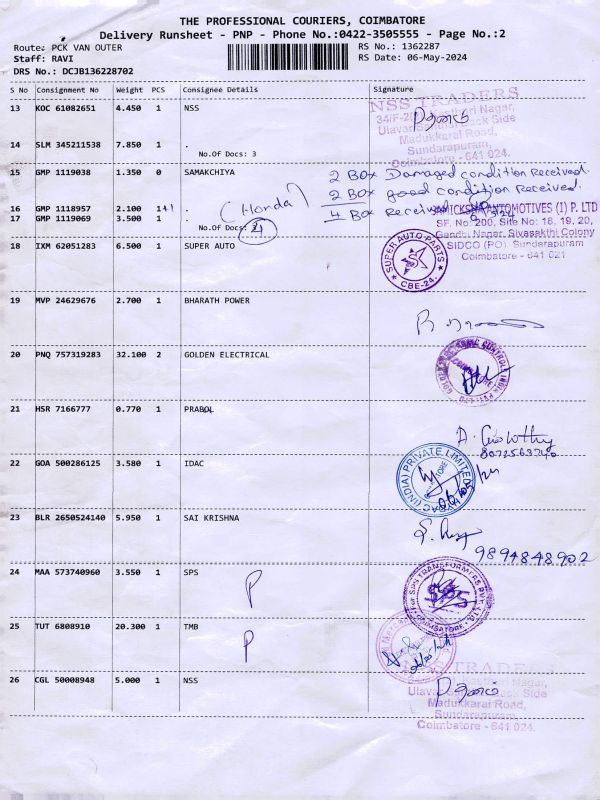 THE PROFESSIONAL COURIERS, COIMBATORE
Delivery Runsheet - PNP - Phone No.:0422-3505555 - Page No.:2
Route: PCK VAN OUTER
RS No.: 1362287
Staff: RAVI
RS Date: 06-May-2024
DRS No.: DCJB136228702
S No Consignment No Weight PCS Consignee Details Signature
13 KOC 61082651 4.450 1 NSS
NSS TRADERS
Madukkarai Road,
Sundarapuram,
Coimbatore - 641 024.
14 SLM 345211538 7.850 1 .
No.Of Docs: 3
15 GMP 1119038 1.350 0 SAMAKCHIYA
2 Box Damaged condition Received.
2 Box good condition Received.
16 GMP 1118957 2.100 1+1 .
(Honda)
4 Box Received
17 GMP 1119069 3.500 1 .
No.Of Docs:
AUTOMOTIVES (I) P. LTD
SF. No: 200, Site No: 18, 19, 20,
Gandhi Nagar, Sivasakthi Colony
SIDCO (PO). Sundarapuram
Coimbatore - 641 021
18 IXM 62051283 6.500 1 SUPER AUTO
SUPER AUTO PARTS
CBE-24.
19 MVP 24629676 2.700 1 BHARATH POWER
20 PNQ 757319283 32.100 2 GOLDEN ELECTRICAL
21 HSR 7166777 0.770 1 PRABOL
22 GOA 500286125 3.580 1 IDAC
(INDIA) PRIVATE LIMITED
23 BLR 2650524140 5.950 1 SAI KRISHNA
9894848902
24 MAA 573740960 3.550 1 SPS
P
for SPS TRANSFORMERS PVT. LTD.
COIMBATORE
25 TUT 6808910 20.300 1 TMB
P
26 CGL 50008948 5.000 1 NSS
NSS TRADERS
Madukkarai Road,
Sundarapuram,
Coimbatore - 641 024.